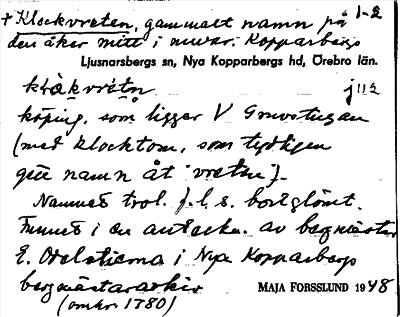 + Klockvreten, gammalt namn på 1-2
den åker mitt i nuvar. Kopparbergs
Ljusnarsbergs sn, Nya Kopparbergs hd, Örebro län.
klåkvrétn j112
köping, som ligger V Gruvstugan
(med klocktorn, som tydligen
gett namn åt "vreten").
Namnet trol. f.l.s. bortglömt.
Finnes i en anteckn. av bergmästar
E. Odelstierna i Nya Kopparbergs
bergmästararkiv MAJA FORSSLUND 1948
(omkr. 1780)